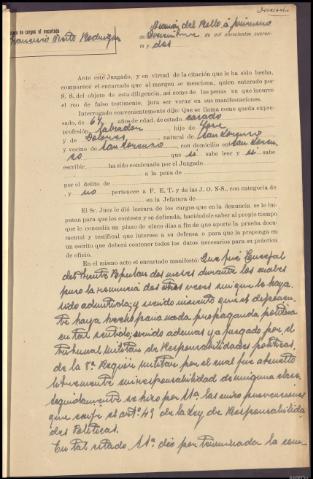 de cargos al encartado
Francisco Pinto Rodriguez
Puebla del
a primero
de mil novecientos cuaren-
ta y dos
Ante este Juzgado, y en virtud de la citación que le ha sido hecha,
comparece el encartado que al margen se menciona, quien enterado por
S. S. del objeto de esta diligencia, así como de las penas en que incurre
el reo de falso testimonio, jura ser veraz en sus manifestaciones.
Interrogado convenientemente dijo: Que se llama como queda expre-
sado, de 64 años de edad, de estado casado
profesión labrador, hijo de José
y de Dolores, natural de San Lorenzo
y vecino de San Lorenzo, con domicilio en San Loren-
zo que sí sabe leer y sí sabe
escribir, ha sido condenado por el Juzgado
a la pena de
por el delito de
y no pertenece a F. E. T. y de las J. O. N-S., con categoría de
en la Jefatura de
El Sr. Juez le dió lectura de los cargos que en la denuncia se le im-
putan para que los conteste y se defienda, haciéndole saber al propio tiempo
que le concedía un plazo de cinco días a fin de que aporte la prueba docu-
mental y testifical que interese a su defensa o para que la proponga en
un escrito que deberá contener todos los datos necesarios para su práctica
de oficio.
En el mismo acto el encartado manifestó: Que fué Concejal
del Frente Popular dos meses durante los cuales
puso la renuncia dos otras veces sin que le haya
sido admitida, y siendo incierto que el
te haya hecho para nada propaganda política
en tal sentido, siendo ademas ya juzgado por el
Tribunal Militar de Responsabilidades políticas
de la 8ª Región Militar, por el cual fue absuelto
libremente sin responsabilidad de ninguna clase.
Seguidamente se hizo por Sª. las cinco prevenciones
que señala el artº 49 de la Ley de Responsabilida
des Políticas.
En tal estado Sª. dió por terminada la com-